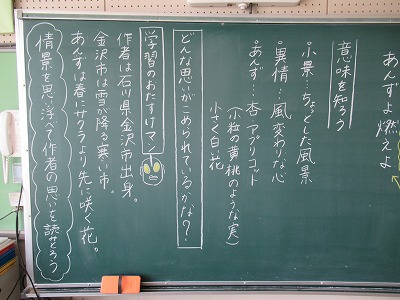 あんずよ燃えよ
意味を知ろう
・小景…ちょっとした風景
・異情…風変わりな心
・あんず…杏 アプリコット
(小粒の黄桃のような実)
小さく白い花
どんな思いがこめられているかな?
学習のおたすけマン
作者は石川県金沢市出身。
金沢市は雪が降る寒い市。
あんずは春にサクラより先に咲く花。
情景を思い浮べ、作者の思いを読もう